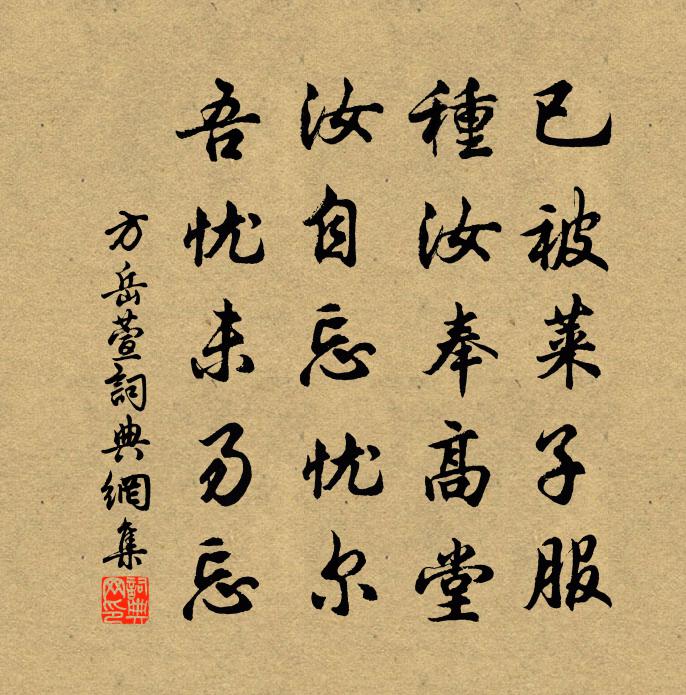 已被萊子服
種汝奉高堂
汝自忘忧尔
吾忧未易忘
方岳萱詞典網集
詞典网印